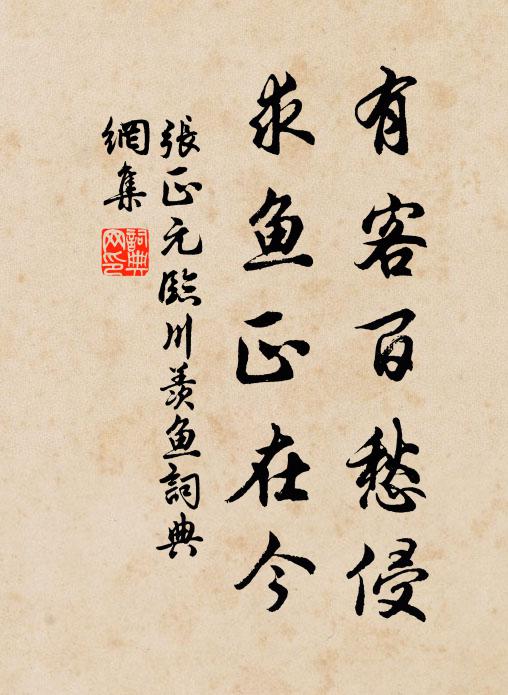 有客百愁侵
求鱼正在今
張正元臨川羨鱼詞典
網集
詞典网印